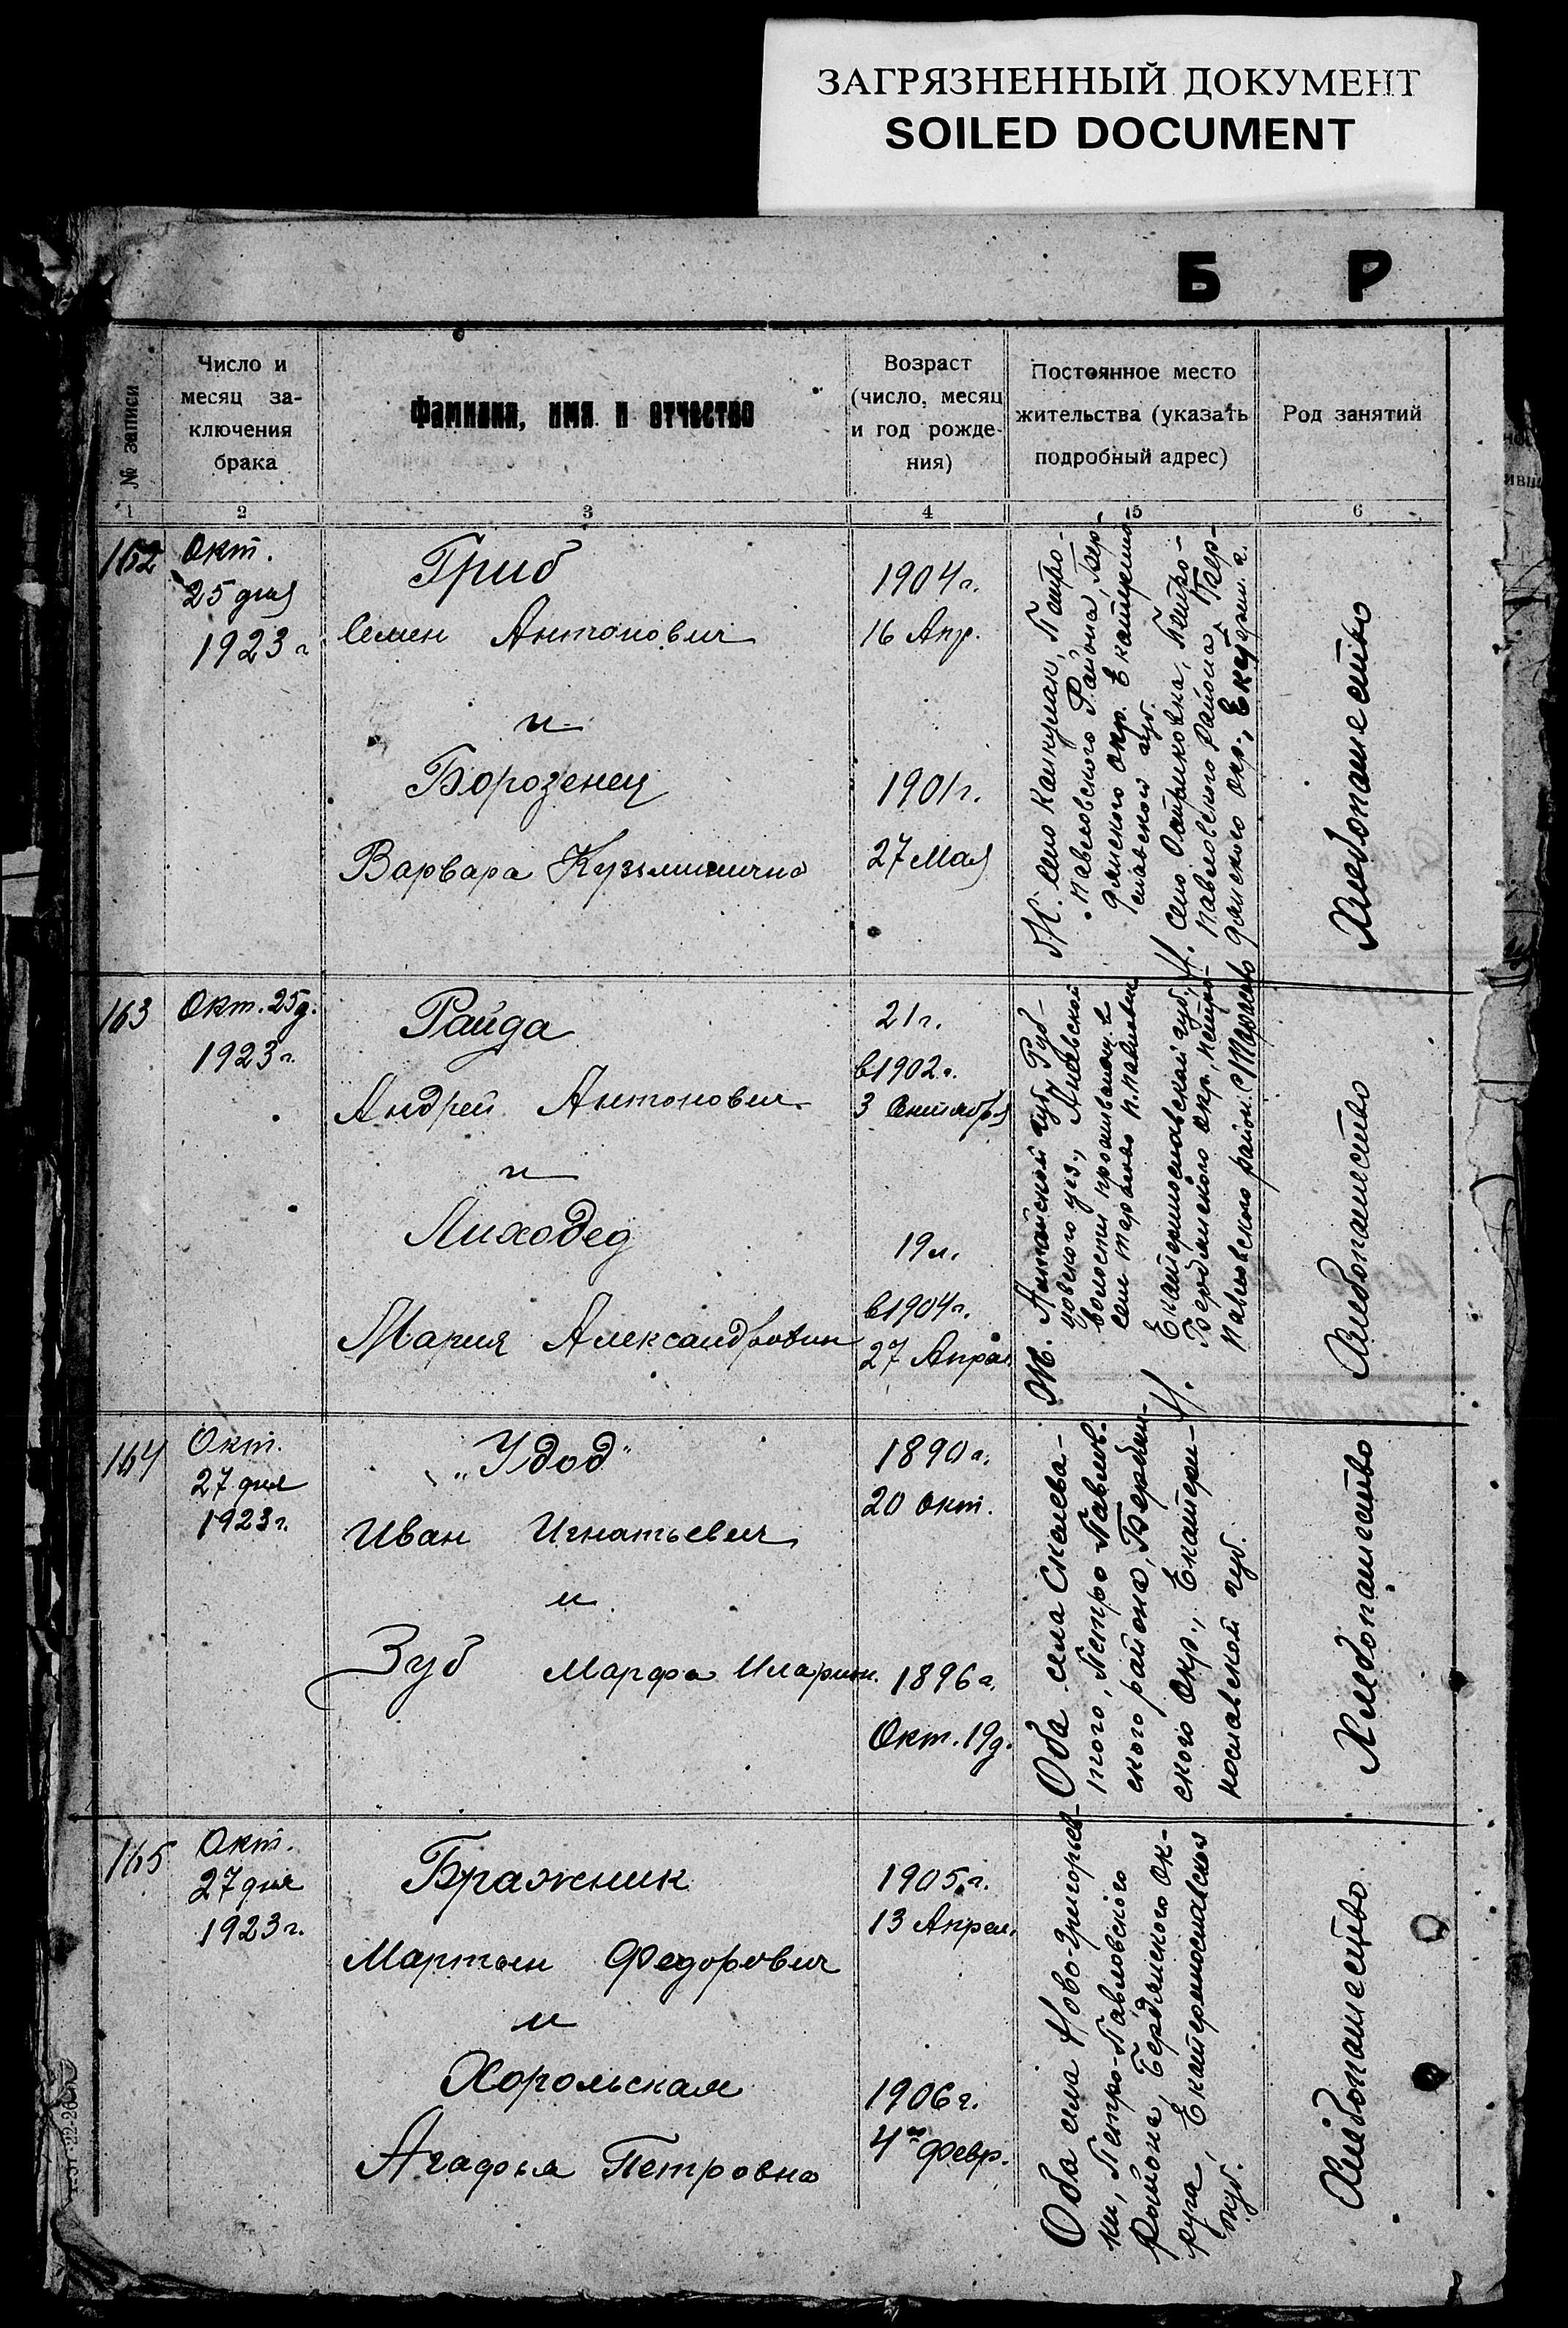 ЗАГРЯЗНЕННЫЙ ДОКУМЕНТ
SOILED DOCUMENT
Б Р
№ записи
Число и
месяц за-
ключения
брака
Фамилия, имя и отчество
Возраст
(число, месяц
и год рожде-
ния)
Постоянное место
жительства (указать
подробный адрес)
Род занятий
1 2 3 4 5 6
162
Окт.
25 дня
1923 г
Гриб
Семен Антонович
и
Борозенец
Варвара Кузьминична
1904 г.
16 Апр.
1901 г.
27 Мая
Ж. село Петро-
павловского Района, Бер-
дянского Окр. Екатерино-
славской губ.
Н. село Петро-
павловского Района, Бер-
дянского Окр., Екатерин. г.
Хлебопашество
163
Окт. 25 д.
1923 г.
Райда
Андрей Антонович
и
Лиходед
Мария Александровн
21 г.
в 1902 г.
3 Сентября
19 л.
в 1904 г.
27 Апрел
Ж. Алтайской губ. Руб-
цовского уез.,
волости проживающ. в
селе
Н. Екатеринославской губ.,
Бердянского окр., Петро-
Павловского район.
Хлебопашество
164
Окт.
27 дня
1923 г.
„Удод"
Иван Игнатьевич
и
Зуб Марфа Иларион.
1890 г.
20 Окт.
1896 г.
Окт. 19 д.
Оба села Скелева-
того, Петро Павлов-
ского района, Бердян-
ского Окр., Екатери-
нославской губ.
Хлебопашество
165
Окт.
27 дня
1923 г.
Бражник
Мартын Федорович
и
Хорольская
Агафья Петровна
1905 г.
13 Апрел.
1906 г.
4го Февр.
Оба села Ново-Григорьев-
ки, Петро-Павловского
Района, Бердянского Ок-
руга, Екатеринославской
губ.
Хлебопашество